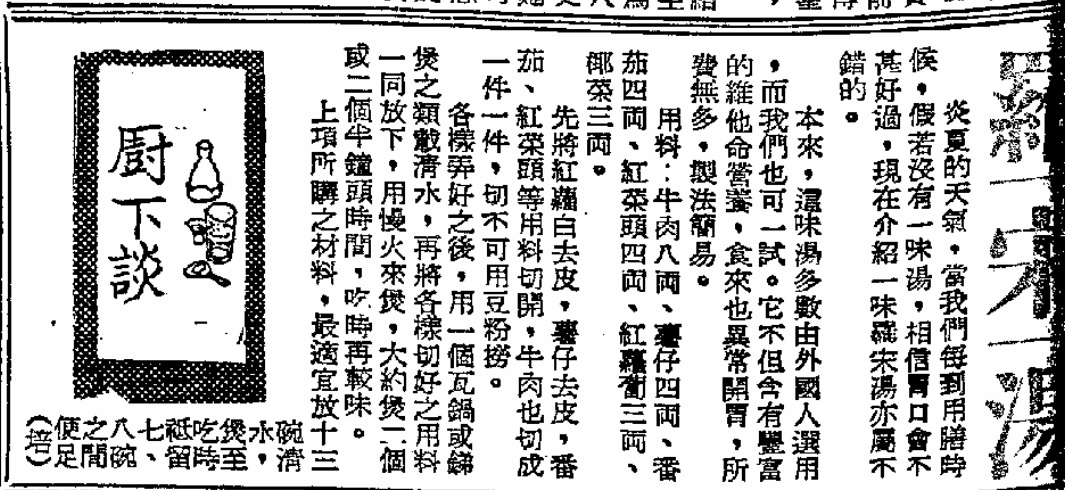 羅宋湯
炎夏的天氣,當我們每到用膳時
候,假若沒有一味湯,相信胃口會不
甚好過,現在介紹一味羅宋湯亦屬不
錯的。
本來,這味湯多數由外國人選用
,而我們也可一試。它不但含有豐富
的維他命營養,食來也異常開胃,所
費無多,製法簡易。
用料:牛肉八両、薯仔四両、番
茄四両、紅菜頭四両、紅蘿蔔三両、
椰菜三両。
先將紅蘿白去皮,薯仔去皮,番
茄、紅菜頭等用料切開,牛肉也切成
一件一件,切不可用豆粉撈。
各樣弄好之後,用一個瓦鍋或銻
煲之類載清水,再將各樣切好之用料
一同放下,用慢火來煲,大約煲二個
或二個半鐘頭時間,吃時再較味。
上項所購之材料,最適宜放十三
碗清
水,
煲至
吃時
祗留
七、
八碗
之間
便足
(培)
廚下談